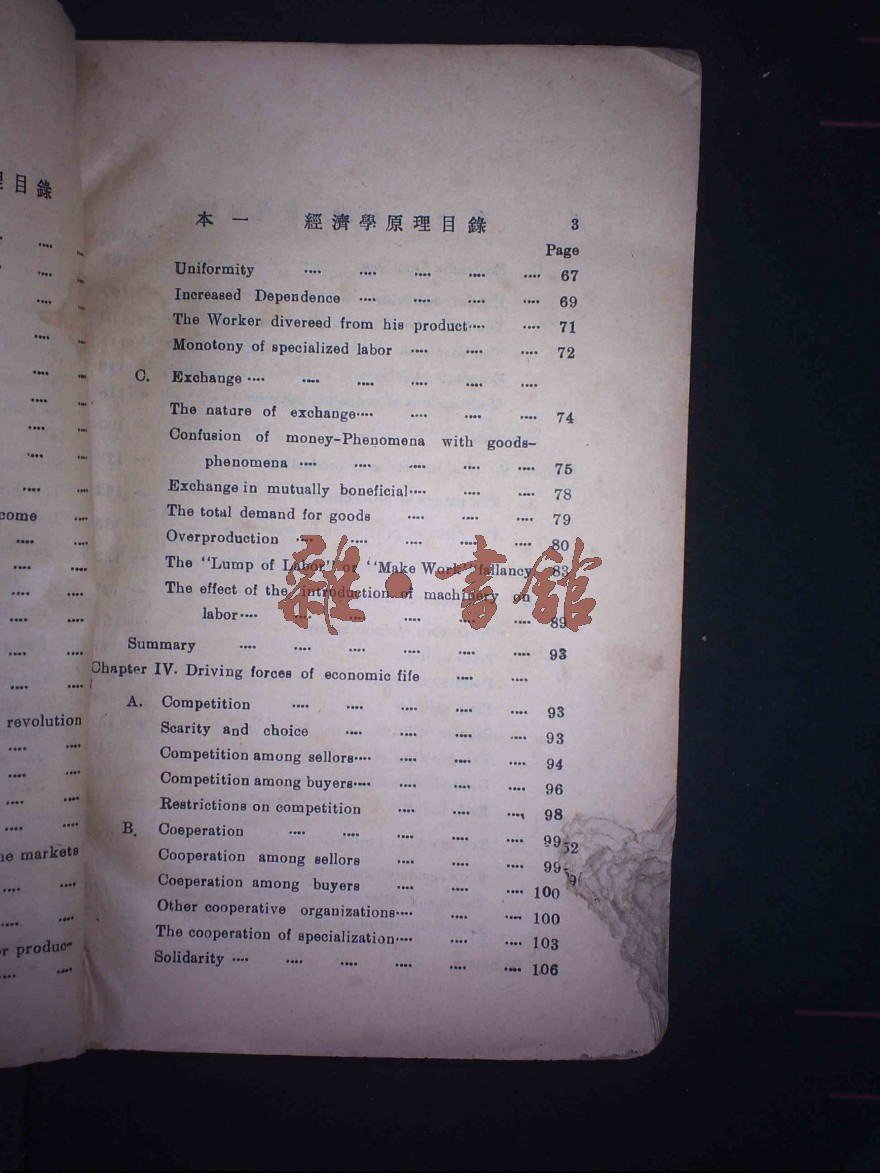 理目錄
come
revolution
markets
produc-
本一 經濟學原理目錄 3
Page
Uniformity .... .... .... .... .... 67
Increased Dependence .... .... .... .... 69
The Worker divereed from his product.... .... .... 71
Monotony of specialized labor .... .... .... 72
C. Exchange .... .... .... .... .... ....
The nature of exchange.... .... .... .... 74
Confusion of money-Phenomena with goods-
phenomena .... .... .... .... .... 75
Exchange in mutually boneficial.... .... .... 78
The total demand for goods .... .... .... 79
Overproduction .... .... .... .... .... 80
The "Lump of Labor" or "Make Work" fallancy 83
The effect of the introduction of machinery on
labor.... .... .... .... .... .... 89
Summary .... .... .... .... .... .... 93
Chapter IV. Driving forces of economic fife .... ....
A. Competition .... .... .... .... .... 93
Scarity and choice .... .... .... .... 93
Competition among sellors.... .... .... .... 94
Competition among buyers.... .... .... .... 96
Restrictions on competition .... .... .... 98
B. Coeperation .... .... .... .... .... 99
52
Cooperation among sellors .... .... .... 99
Coeperation among buyers .... .... .... 100
Other cooperative organizations.... .... .... 100
The cooperation of specialization.... .... .... 103
Solidarity .... .... .... .... .... .... 106
雜·書館